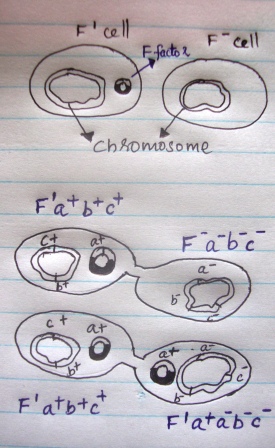 F' cell
F⁻ cell
F-factor
Chromosome
F'a⁺b⁺c⁺
F⁻a⁻b⁻c⁻
c⁺ a⁺
b⁺
a⁻
b⁻
c⁻
c⁺ a⁺
b⁺
a⁺ a⁻
c⁻
b⁻
F'a⁺b⁺c⁺
F'a⁺a⁻b⁻c⁻